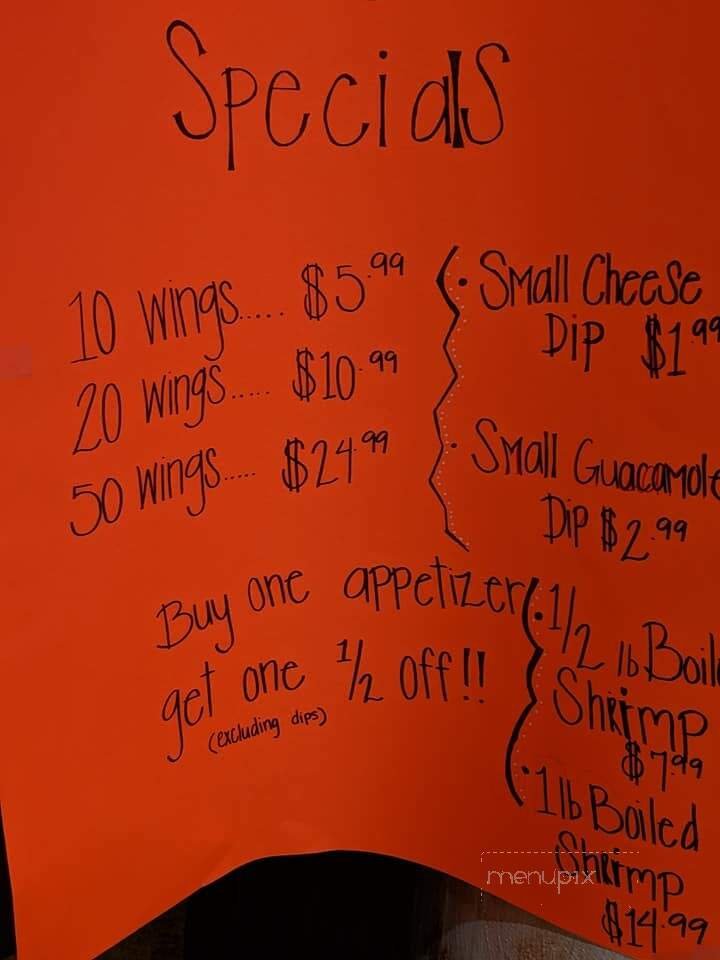 Specials
10 Wings..... $5.99
20 Wings..... $10.99
50 Wings..... $24.99
Buy one appetizer
get one 1/2 off!!
(excluding dips)
• Small Cheese
Dip $1.99
• Small Guacamole
Dip $2.99
• 1/2 lb Boil
Shrimp
$7.99
• 1lb Boiled
Shrimp
$14.99
menupix